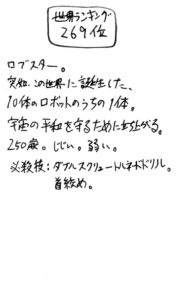 世界ランキング
269位
ロブスター。
突如、この世界に誕生した、
10体のロボットのうちの1体。
宇宙の平和を守るために立ち上がる。
250歳。じじい。弱い。
必殺技:ダブルスクリュートルネードドリル。
首絞め。